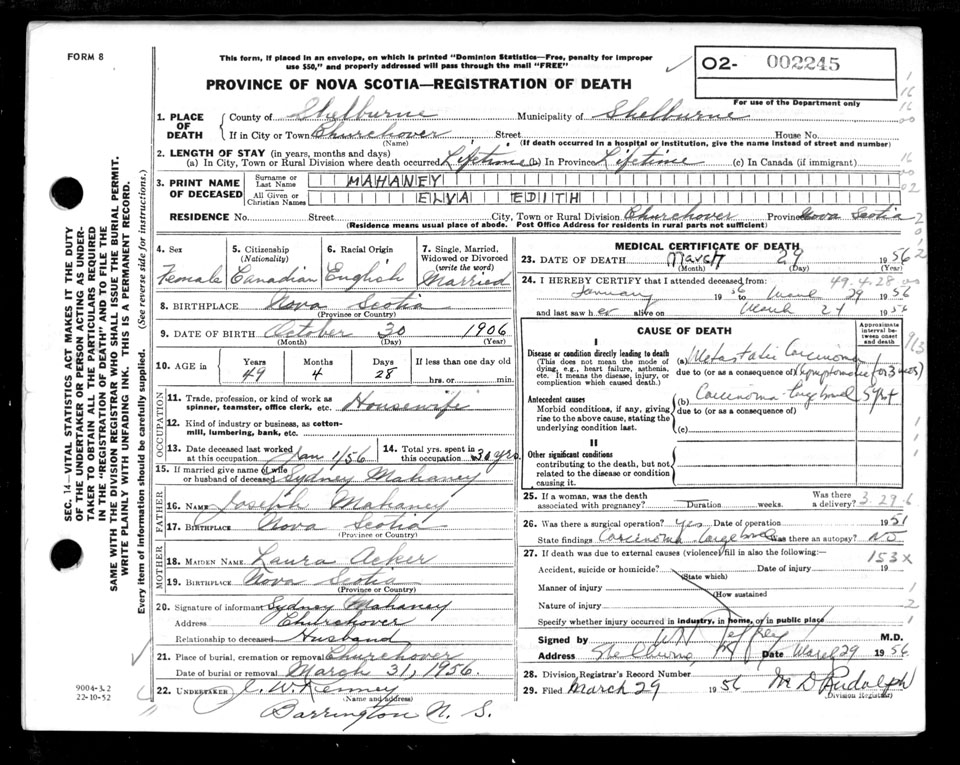 FORM 8
This form, if placed in an envelope, on which is printed "Dominion Statistics—Free, penalty for improper
use $50," and properly addressed will pass through the mail "FREE"
PROVINCE OF NOVA SCOTIA—REGISTRATION OF DEATH
O2- 002245
For use of the Department only
1. PLACE OF DEATH
County of Shelburne Municipality of Shelburne
If in City or Town Churchover Street House No.
(Name) (If death occurred in a hospital or institution, give the name instead of street and number)
2. LENGTH OF STAY (in years, months and days)
(a) In City, Town or Rural Division where death occurred Lifetime (b) In Province Lifetime (c) In Canada (if immigrant)
3. PRINT NAME OF DECEASED
Surname or Last Name MAHANEY
All Given or Christian Names ELVA EDITH
RESIDENCE No. Street City, Town or Rural Division Churchover Province Nova Scotia
(Residence means usual place of abode. Post Office Address for residents in rural parts not sufficient)
4. Sex Female
5. Citizenship (Nationality) Canadian
6. Racial Origin English
7. Single, Married, Widowed or Divorced (write the word) Married
8. BIRTHPLACE Nova Scotia
(Province or Country)
9. DATE OF BIRTH October 30 1906
(Month) (Day) (Year)
10. AGE in Years 49 Months 4 Days 28 If less than one day old hrs. or min.
OCCUPATION
11. Trade, profession, or kind of work as spinner, teamster, office clerk, etc. Housewife
12. Kind of industry or business, as cotton-mill, lumbering, bank, etc.
13. Date deceased last worked at this occupation Jan 1/56
14. Total yrs. spent in this occupation 30 yrs.
15. If married give name of wife or husband of deceased Sydney Mahaney
FATHER
16. NAME Joseph Mahaney
17. BIRTHPLACE Nova Scotia
(Province or Country)
MOTHER
18. MAIDEN NAME Laura Acker
19. BIRTHPLACE Nova Scotia
(Province or Country)
20. Signature of informant Sydney Mahaney
Address Churchover
Relationship to deceased Husband
21. Place of burial, cremation or removal Churchover
Date of burial or removal March 31, 1956.
22. UNDERTAKER J. W. Kenney
(Name and address)
Barrington N. S.
MEDICAL CERTIFICATE OF DEATH
23. DATE OF DEATH March 29 1956
(Month) (Day)
24. I HEREBY CERTIFY that I attended deceased from: 49.4.28
January 1956 to March 29 1956
and last saw her alive on March 27 1956
CAUSE OF DEATH
Approximate interval between onset and death
I
Disease or condition directly leading to death
(This does not mean the mode of dying, e.g., heart failure, asthenia, etc. It means the disease, injury, or complication which caused death.)
(a) Metastatic Carcinoma
due to (or as a consequence of) (symptomatic for 3 mos)
Antecedent causes
Morbid conditions, if any, giving rise to the above cause, stating the underlying condition last.
(b) Carcinoma Large bowel 5 yr+
due to (or as a consequence of)
(c)
II
Other significant conditions
contributing to the death, but not related to the disease or condition causing it.
25. If a woman, was the death associated with pregnancy? Duration weeks. Was there a delivery? 3-29-6
26. Was there a surgical operation? Yes Date of operation 1951
State findings Carcinoma Large bowel Was there an autopsy? NO
27. If death was due to external causes (violence) fill in also the following:— 153X
Accident, suicide or homicide? Date of injury 19
(State which)
Manner of injury
(How sustained
Nature of injury
Specify whether injury occurred in industry, in home, or in public place
Signed by Jeffrey M.D.
Address Shelburne, Date March 29 1956
28. Division Registrar's Record Number
29. Filed March 29 1956 M D Rudolph
(Division Registrar)
SEC. 14—VITAL STATISTICS ACT MAKES IT THE DUTY
OF THE UNDERTAKER OR PERSON ACTING AS UNDER-
TAKER TO OBTAIN ALL THE PARTICULARS REQUIRED
IN THE "REGISTRATION OF DEATH" AND TO FILE THE
SAME WITH THE DIVISION REGISTRAR WHO SHALL ISSUE THE BURIAL PERMIT.
WRITE PLAINLY WITH UNFADING INK. THIS IS A PERMANENT RECORD.
Every item of information should be carefully supplied. (See reverse side for instructions.)
9004-3.2
22-10-52